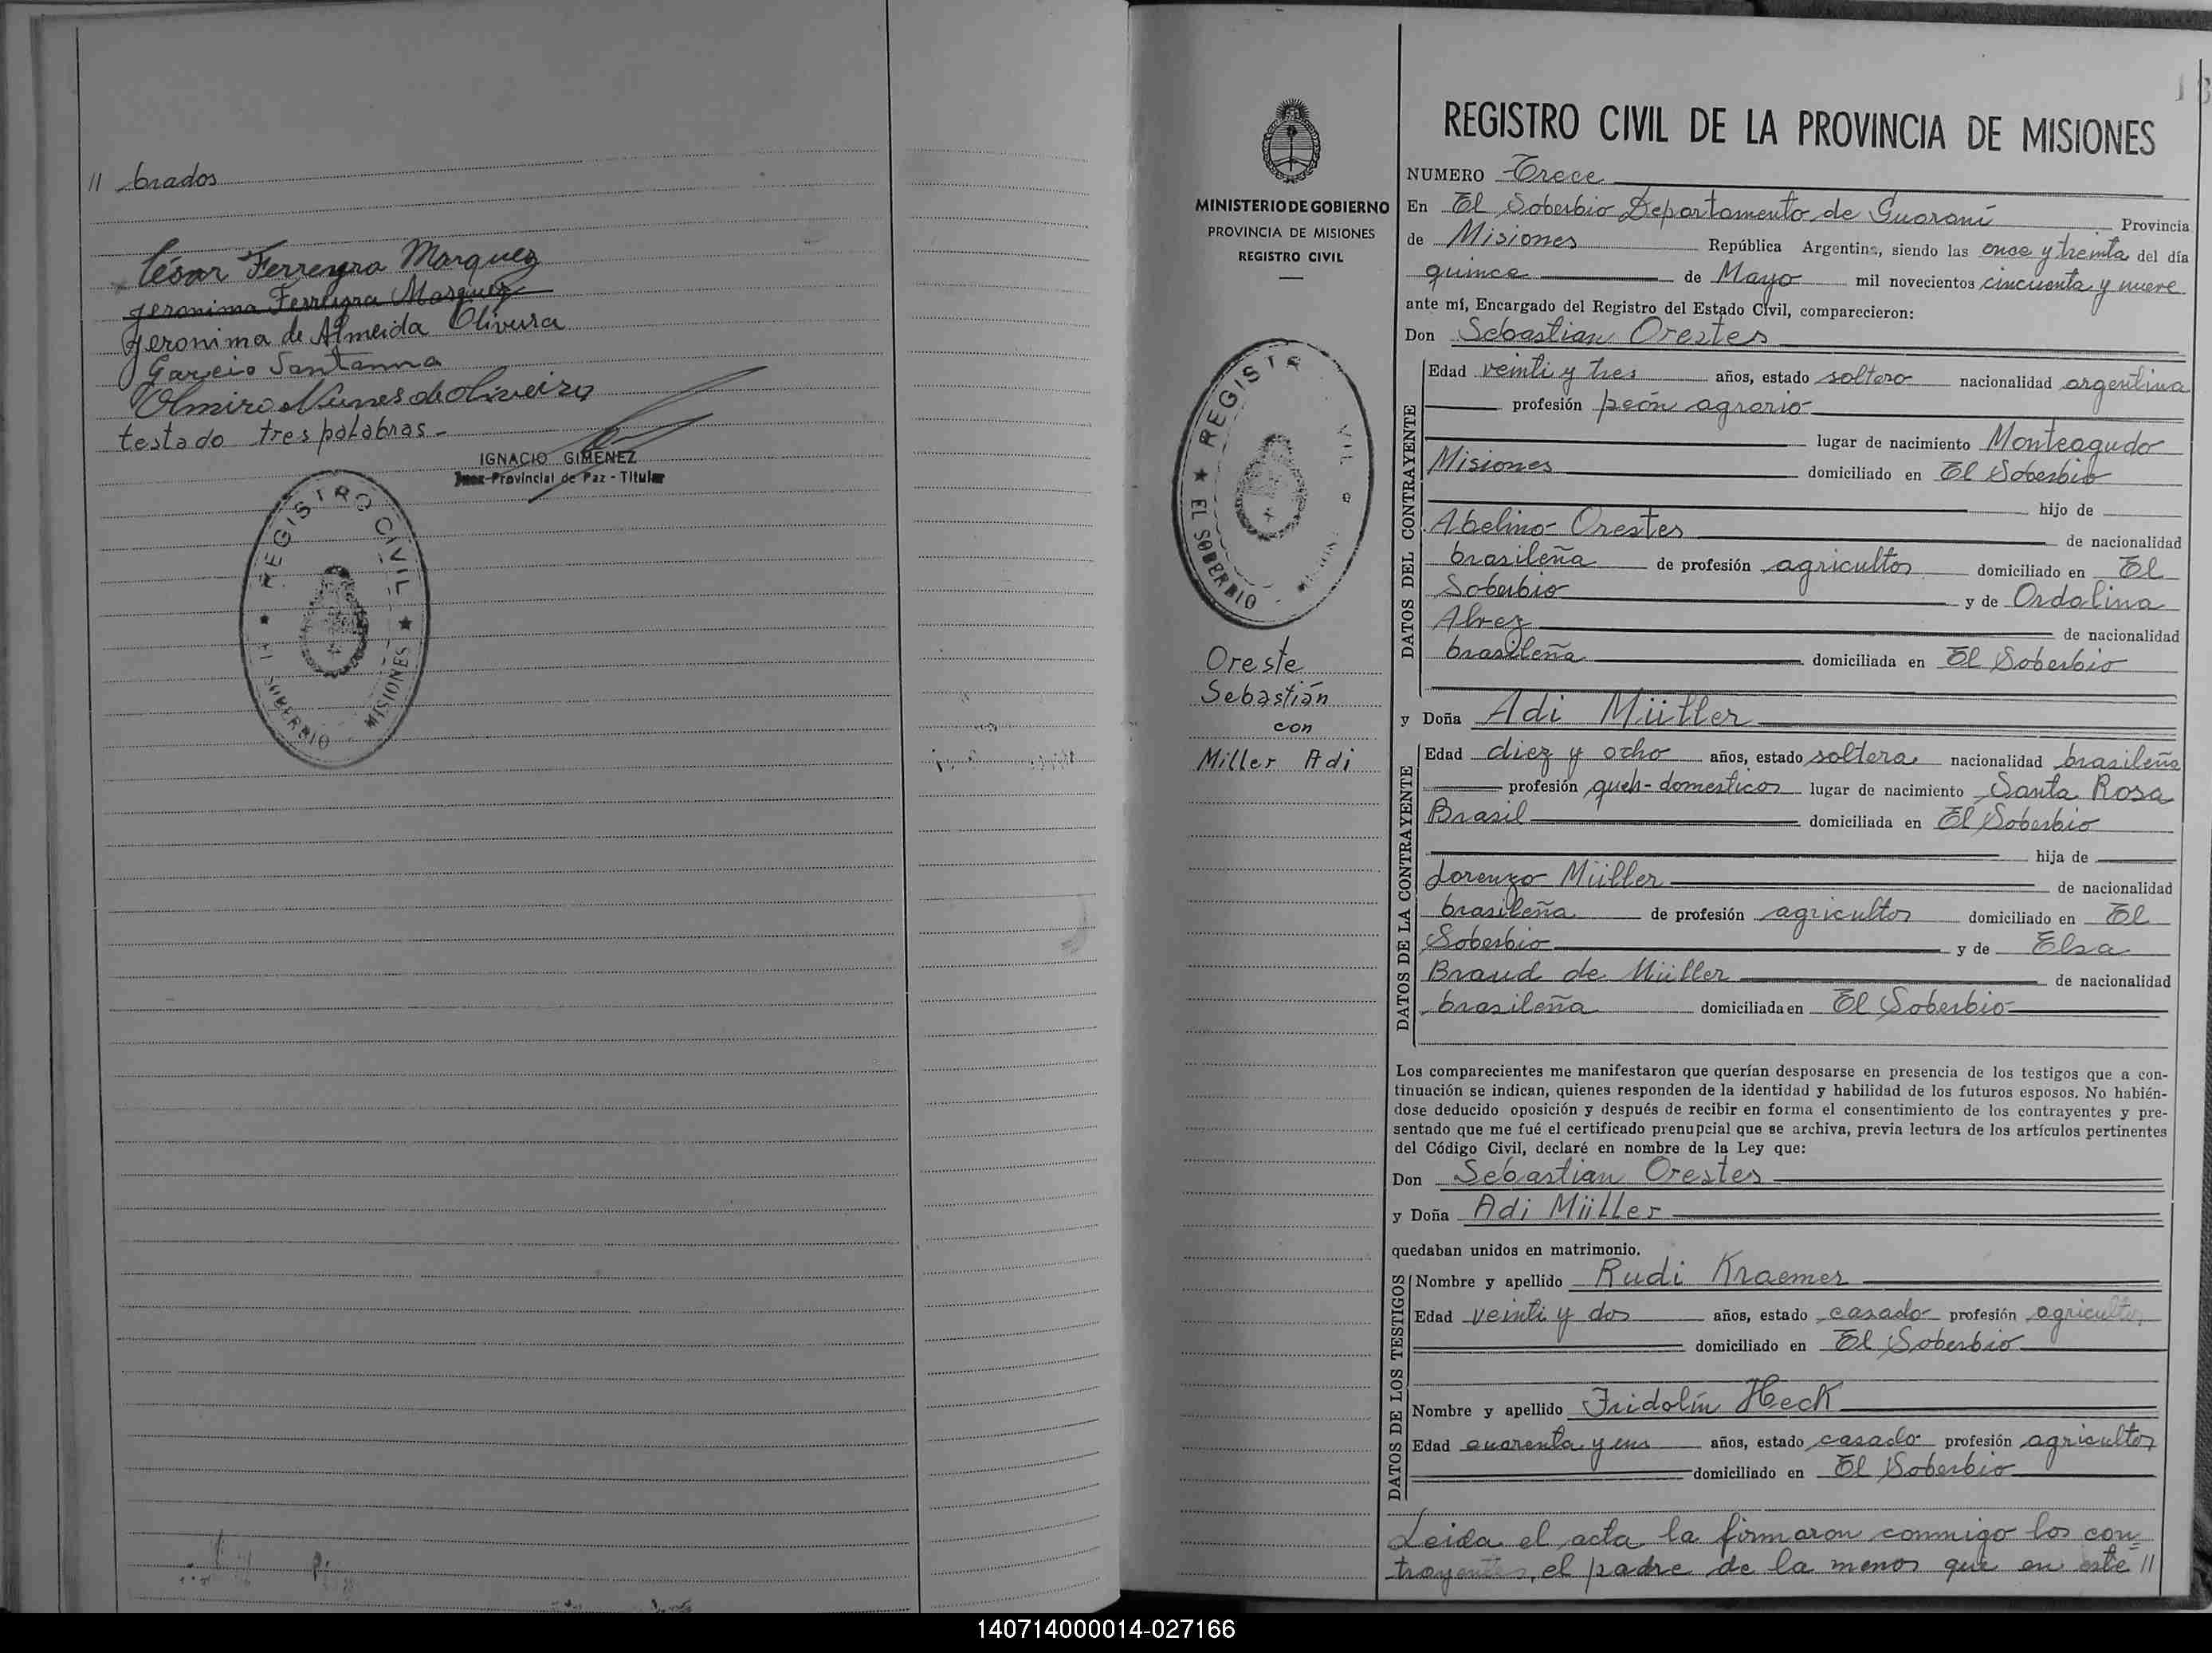 // brados
César Ferreyra Marquez
Jeronima Ferreyra Marquez
Jeronima de Almeida Olivera
Garcio Santanna
Olmiro Nunes de Oliveira
testado tres palabras -
IGNACIO GIMENEZ
Juez Provincial de Paz - Titular
REGISTRO CIVIL
EL SOBERBIO MISIONES
MINISTERIO DE GOBIERNO
PROVINCIA DE MISIONES
REGISTRO CIVIL
REGISTR VIL
EL SOBERBIO
Oreste
Sebastián
con
Miller Adi
REGISTRO CIVIL DE LA PROVINCIA DE MISIONES
NUMERO Trece
En El Soberbio Departamento de Guaraní Provincia
de Misiones República Argentina, siendo las once y treinta del día
quince de Mayo mil novecientos cincuenta y nueve
ante mí, Encargado del Registro del Estado Civil, comparecieron:
Don Sebastian Orestes
DATOS DEL CONTRAYENTE
Edad veinti y tres años, estado soltero nacionalidad argentina
profesión peón agrario
lugar de nacimiento Monteagudo
Misiones domiciliado en El Soberbio
hijo de
Abelino Orestes de nacionalidad
brasileña de profesión agricultor domiciliado en El
Soberbio y de Ordalina
Alvez de nacionalidad
brasileña domiciliada en El Soberbio
y Doña Adi Müller
DATOS DE LA CONTRAYENTE
Edad diez y ocho años, estado soltera nacionalidad brasileña
profesión queh-domesticos lugar de nacimiento Santa Rosa
Brasil domiciliada en El Soberbio
hija de
Lorenzo Müller de nacionalidad
brasileña de profesión agricultor domiciliado en El
Soberbio y de Elsa
Braud de Müller de nacionalidad
brasileña domiciliada en El Soberbio
Los comparecientes me manifestaron que querían desposarse en presencia de los testigos que a con-
tinuación se indican, quienes responden de la identidad y habilidad de los futuros esposos. No habién-
dose deducido oposición y después de recibir en forma el consentimiento de los contrayentes y pre-
sentado que me fué el certificado prenupcial que se archiva, previa lectura de los artículos pertinentes
del Código Civil, declaré en nombre de la Ley que:
Don Sebastian Orestes
y Doña Adi Müller
quedaban unidos en matrimonio.
DATOS DE LOS TESTIGOS
Nombre y apellido Rudi Kraemer
Edad veinti y dos años, estado casado profesión agricultor
domiciliado en El Soberbio
Nombre y apellido Fridolín Heck
Edad cuarenta y un años, estado casado profesión agricultor
domiciliado en El Soberbio
Leida el acta la firmaron conmigo los con=
trayentes, el padre de la menor que en este //
140714000014-027166